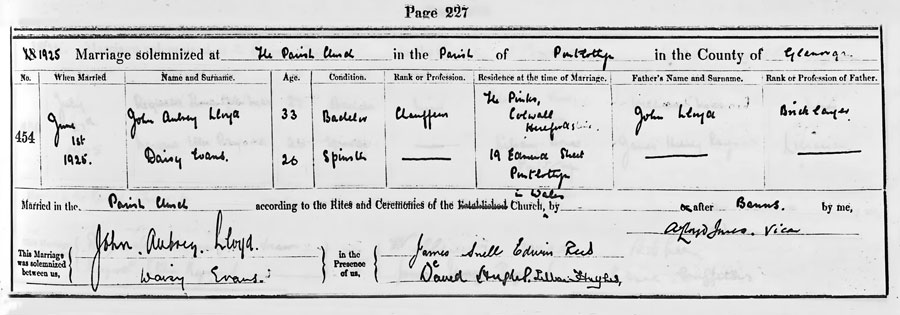 Page 227
1925 Marriage solemnized at The Parish Church in the Parish of Pontlottyn in the County of Glamorgan
No. When Married Name and Surname. Age. Condition. Rank or Profession. Residence at the time of Marriage. Father's Name and Surname. Rank or Profession of Father.
454 June 1st 1925. John Aubrey Lloyd 33 Bachelor Chauffeur The Pinks, Colwall Herefordshire John Lloyd Bricklayer
Daisy Evans. 26 Spinster 19 Edmund Street Pontlottyn
in Wales
Married in the Parish Church according to the Rites and Ceremonies of the Established Church, by or after Banns. by me,
Vicar
This Marriage was solemnized between us, John Aubrey Lloyd. in the Presence of us, James Snell Edwin Reed
Daisy Evans. David Hughes. Lillian Hughes,